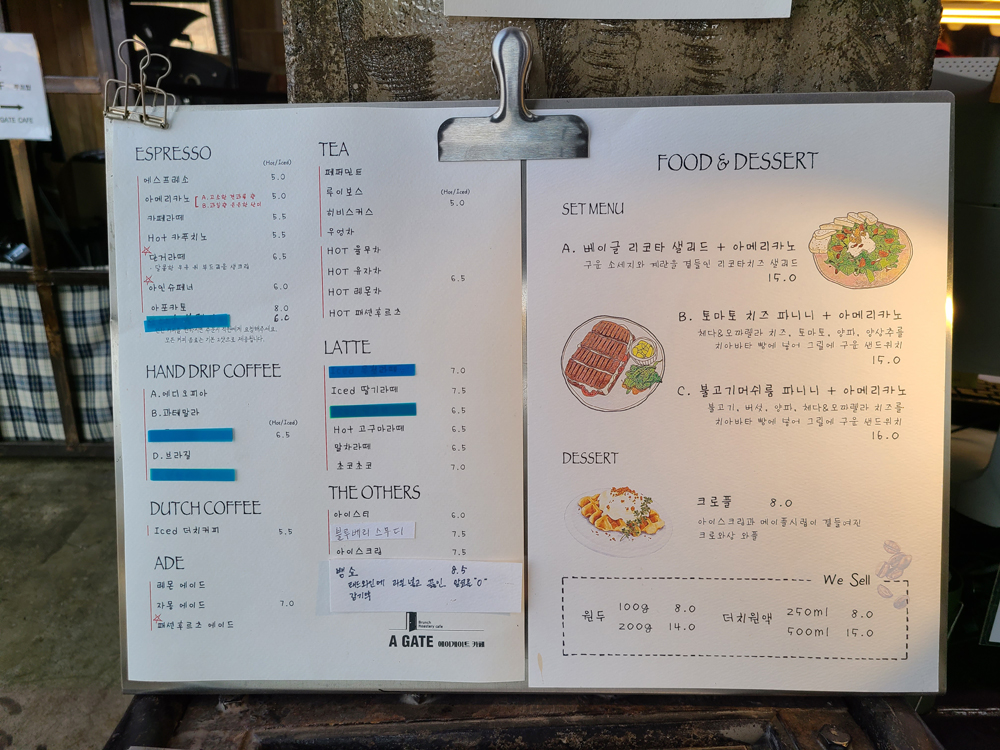 GATE CAFE
ESPRESSO
(Hot/Iced)
에스프레소 5.0
아메리카노 5.0
카페라떼 5.5
Hot 카푸치노 5.5
단거라떼 6.5
아인슈페너 6.0
아포카토 8.0
6.0
HAND DRIP COFFEE
A.에디오피아
B.과테말라
(Hot/Iced)
6.5
D.브라질
DUTCH COFFEE
Iced 더치커피 5.5
ADE
레몬 에이드
자몽 에이드 7.0
패션후르츠 에이드
TEA
페퍼민트
루이보스
(Hot/Iced)
5.0
히비스커스
우엉차
HOT 율무차
HOT 유자차
6.5
HOT 레몬차
HOT 패션후르츠
LATTE
7.0
Iced 딸기라떼 7.5
6.5
Hot 고구마라떼 6.5
말차라떼 6.5
초코초코 7.0
THE OTHERS
아이스티 6.0
블루베리 스무디 7.5
아이스크림 7.5
뱅쇼 8.5
레드와인에 과일 넣고 끓인 알콜 "0"
감기뚝
Brunch
Roastery cafe
A GATE 에이게이트 카페
FOOD & DESSERT
SET MENU
A. 베이글 리코타 샐러드 + 아메리카노
구운 소세지와 계란을 곁들인 리코타치즈 샐러드
15.0
B. 토마토 치즈 파니니 + 아메리카노
체다&모짜렐라 치즈, 토마토, 양파, 양상추를
치아바타 빵에 넣어 그릴에 구운 샌드위치
15.0
C. 불고기머쉬룸 파니니 + 아메리카노
불고기, 버섯, 양파, 체다&모짜렐라 치즈를
치아바타 빵에 넣어 그릴에 구운 샌드위치
16.0
DESSERT
크로플 8.0
아이스크림과 메이플시럽이 곁들여진
크로와상 와플
We Sell
원두 100g 8.0
200g 14.0
더치원액 250ml 8.0
500ml 15.0